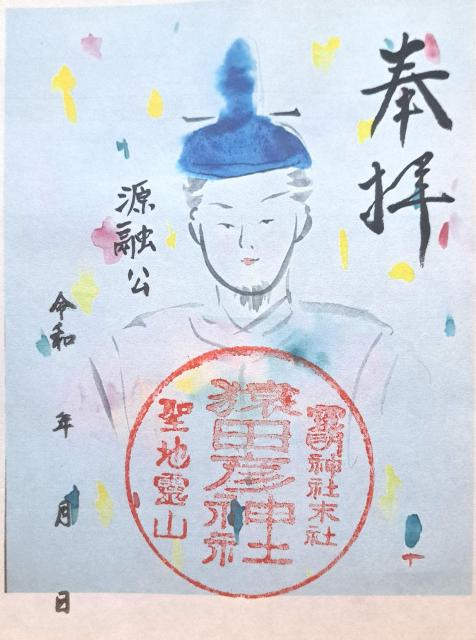 奉拝
源融公
令和 年 月 日
霊明神社末社
猿田彦神社
聖地靈山